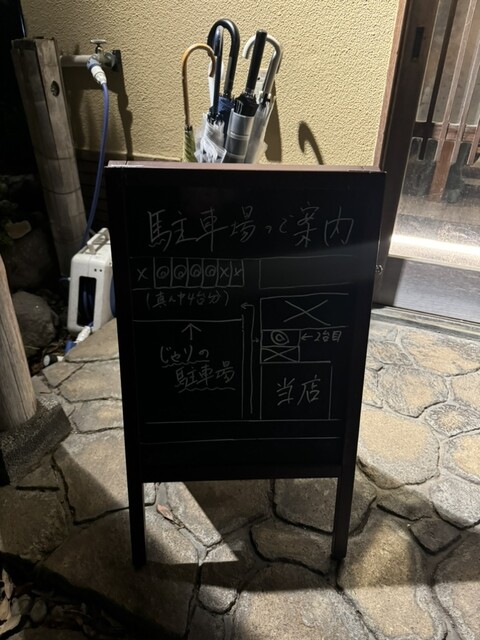 駐車場のご案内
×◎◎◎◎××
(真ん中4台分)
↑
じゃりの
駐車場
×
◎←2台目
×
当店